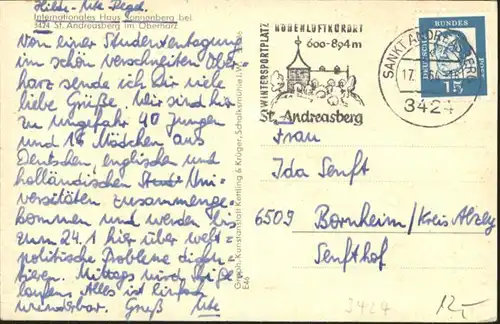 Hilde-Ute Pegel.
Internationales Haus Sonnenberg bei
3424 St. Andreasberg im Oberharz
Von einer Studententagung
im schön verschneiten Ober-
harz sende ich Dir viele
liebe Grüße. Wir sind hier
zu ungefähr 40 Jungen
und 16 Mädchen aus
Deutschen, englischen und
holländischen Uni-
versitäten zusammenge-
kommen und werden bis
zum 24.1 hier über welt-
politische Probleme disku-
tieren. Mittags wird Ski ge-
laufen. Alles ist einfach
wunderbar. Gruß Ute
Graph. Kunstanstalt Kettling & Krüger, Schalksmühle i. W.
E46
HÖHENLUFTKURORT
600-894m
WINTERSPORTPLATZ
St. Andreasberg
SANKT ANDREASBERG
17.
3424
BUNDES
DEUTSCHE
15
Frau
Ida Senft
6509 Bornheim/Kreis Alzey
Senfthof
3424
12,-